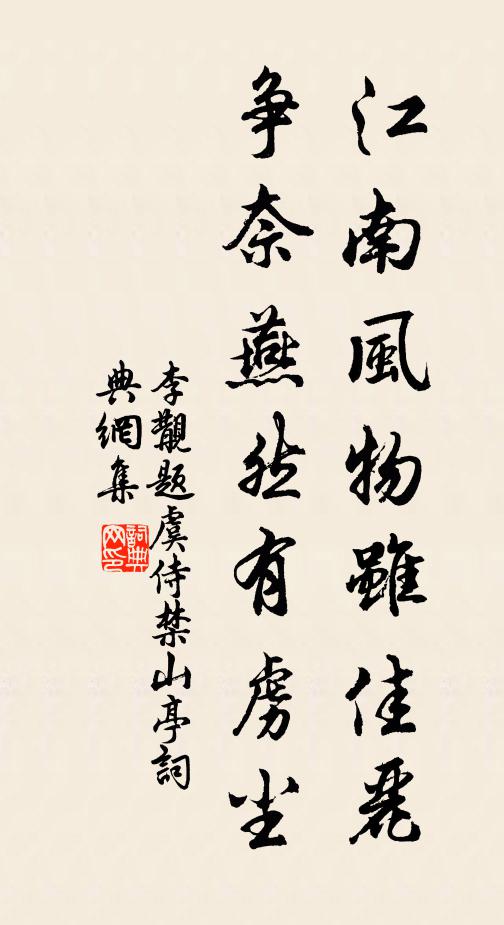 江南風物雖佳麗
争奈燕然有虜尘
李觀題虞侍禁山亭詞
典網集
詞典网印